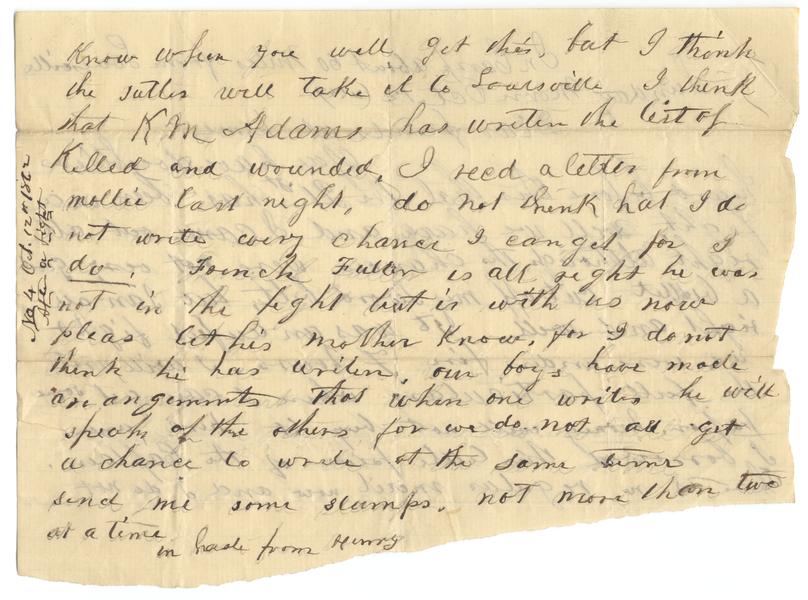 Know when you will get this, but I think
the sutler will take it to Louisville I think
that K M Adams has writen the list of
Killed and wounded, I recd a letter from
mollie last night, do not think hat I do
not write every chance I can get for I
do. French Fuller is all right he was
not in the fight but is with us now
pleas let his mother Know, for I do not
think he has writen, our boys have made
arangements that when one writes he will
speak of the others for we do not all get
a chance to write at the same time
send me some stamps. not more than two
at a time
in haste from Henry
No 4 Oct. 12th 1862
after a fight